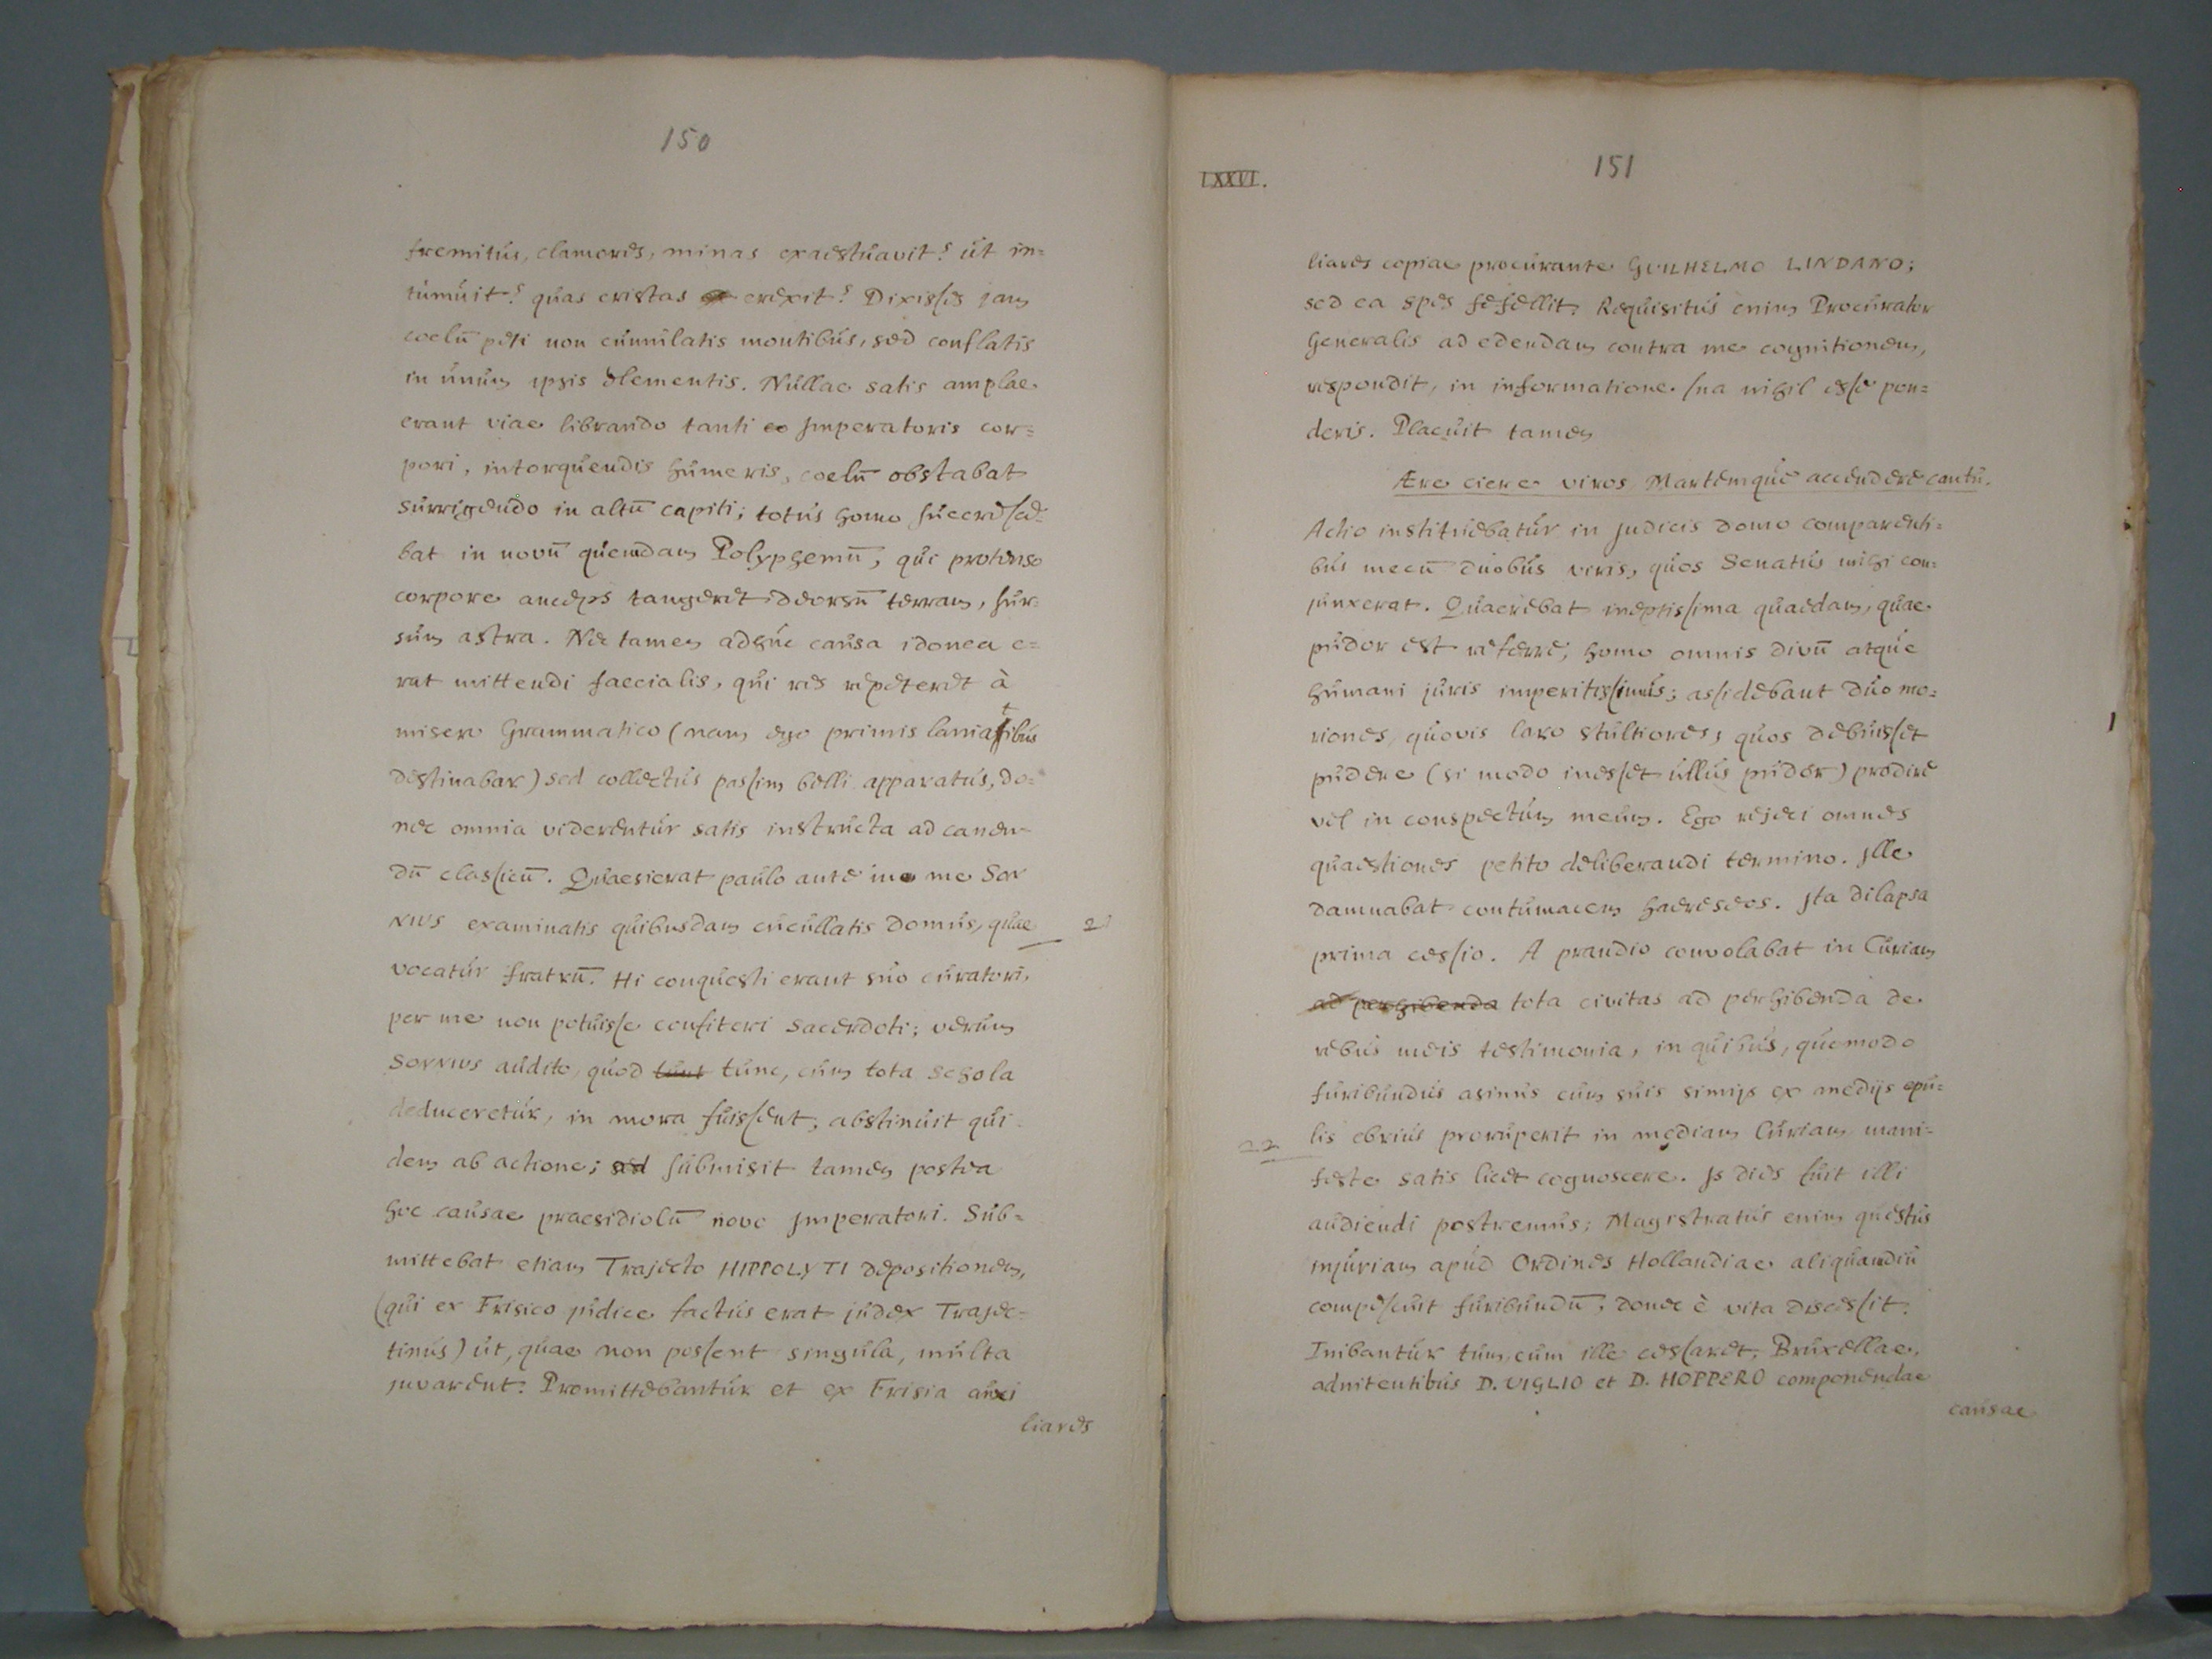 150
fremitus, clamores, minas exaestuavit? ut in=
tumuit? quas cristas erexit? Dixisses jam
coelū peti non cumulatis montibus, sed conflatis
in unum ipsis elementis. Nullae satis amplae
erant viae librando tanti Imperatoris cor=
pori, intorquendis humeris, coelū obstabat
surrigendo in altū capiti; totus homo succrese=
bat in novū quemdam Polyphemū, qui protenso
corpore anceps tangeret deorsū terram, sur=
sum astra. Nec tamen adhuc causa idonea e=
rat mittendi faecialis, qui res repeteret à
misero Grammatico (nam ego primis laniatibus
destinabar) sed collectus passim belli apparatus, do=
nec omnia viderentur satis instructa ad canen=
dū classicū. Quaesierat paulo ante in me Son
nius examinatis quibusdam cucullatis domus, quae 21
vocatur fratrū. Hi conquesti erant suo curatori,
per me non potuisse confiteri sacerdoti; verum
Sonnius audito, quod tunc, cum tota schola
deduceretur, in mora fuissent, abstinuit qui
dem ab actione; sed submisit tamen postea
hoc causae praesidiolū novo Imperatori. Sub=
mittebat etiam Trajecto HIPPOLYTI depositionem,
(qui ex Frisico judice factus erat judex Trajec=
tinus) ut, quae non possent singula, multa
juvarent. Promittebantur et ex Frisia auxi
liares
LXXVI.
151
liares copiae procurante GUILHELMO LINDANO;
sed ea spes fefellit. Requisitus enim Procurator
Generalis ad edendam contra me cognitionem,
respondit, in informatione sua nihil esse pon=
deris. Placuit tamen
Ære ciere viros, Martemque accendere cantu.
Actio instituebatur in judicis domo comparenti=
bus mecū duobus viris, quos Senatus mihi con=
junxerat. Quaerebat ineptissima quaedam, quae
pudor est referre; homo omnis divū atque
humani juris imperitissimus; assidebant duo mo=
riones, quovis laro stultiores, quos debuisset
pudere (si modo inesset ullus pudor) prodire
vel in conspectum meum. Ego rejeci omnes
quaestiones petito deliberandi termino. Ille
damnabat contumacem haereseos. Ita dilapsa
prima cessio. A prandio convolabat in Curiam
ad perhibenda tota civitas ad perhibenda de
rebus meis testimonia, in quibus, quomodo
furibundus asinus cum suis simijs ex medijs epu=
22 lis ebrius proruperit in mediam Curiam mani=
feste satis licet cognoscere. Is dies fuit illi
audiendi postremus; Magistratus enim questus
injuriam apud Ordines Hollandiae aliquandiu
compescuit furibundū, donec è vita discessit.
Inibantur tum, cum ille cessaret, Bruxellae,
adnitentibus D. VIGLIO et D. HOPPERO componendae
causae